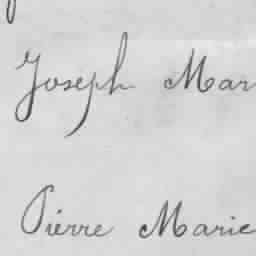 Joseph Mar
Pierre Marie